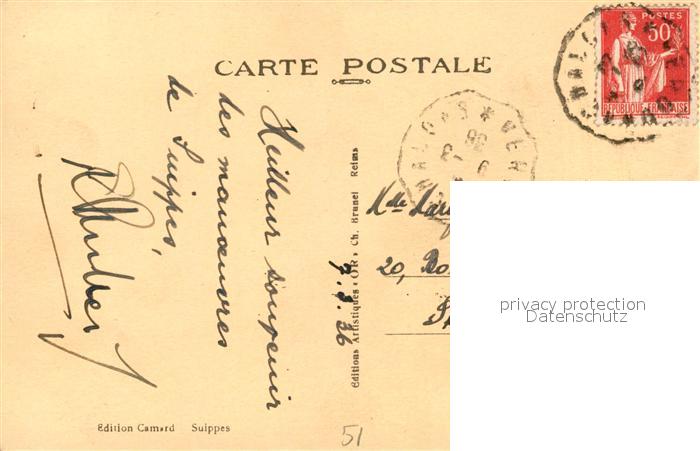 CARTE POSTALE
POSTES
50c
REPUBLIQUE FRANÇAISE
Meilleur souvenir
des manœuvres
de Suippes,
7.9.36
Editions Artistiques "OR" Ch. Brunel Reims
Mlle
20,
privacy protection
Datenschutz
Edition Camard Suippes
51